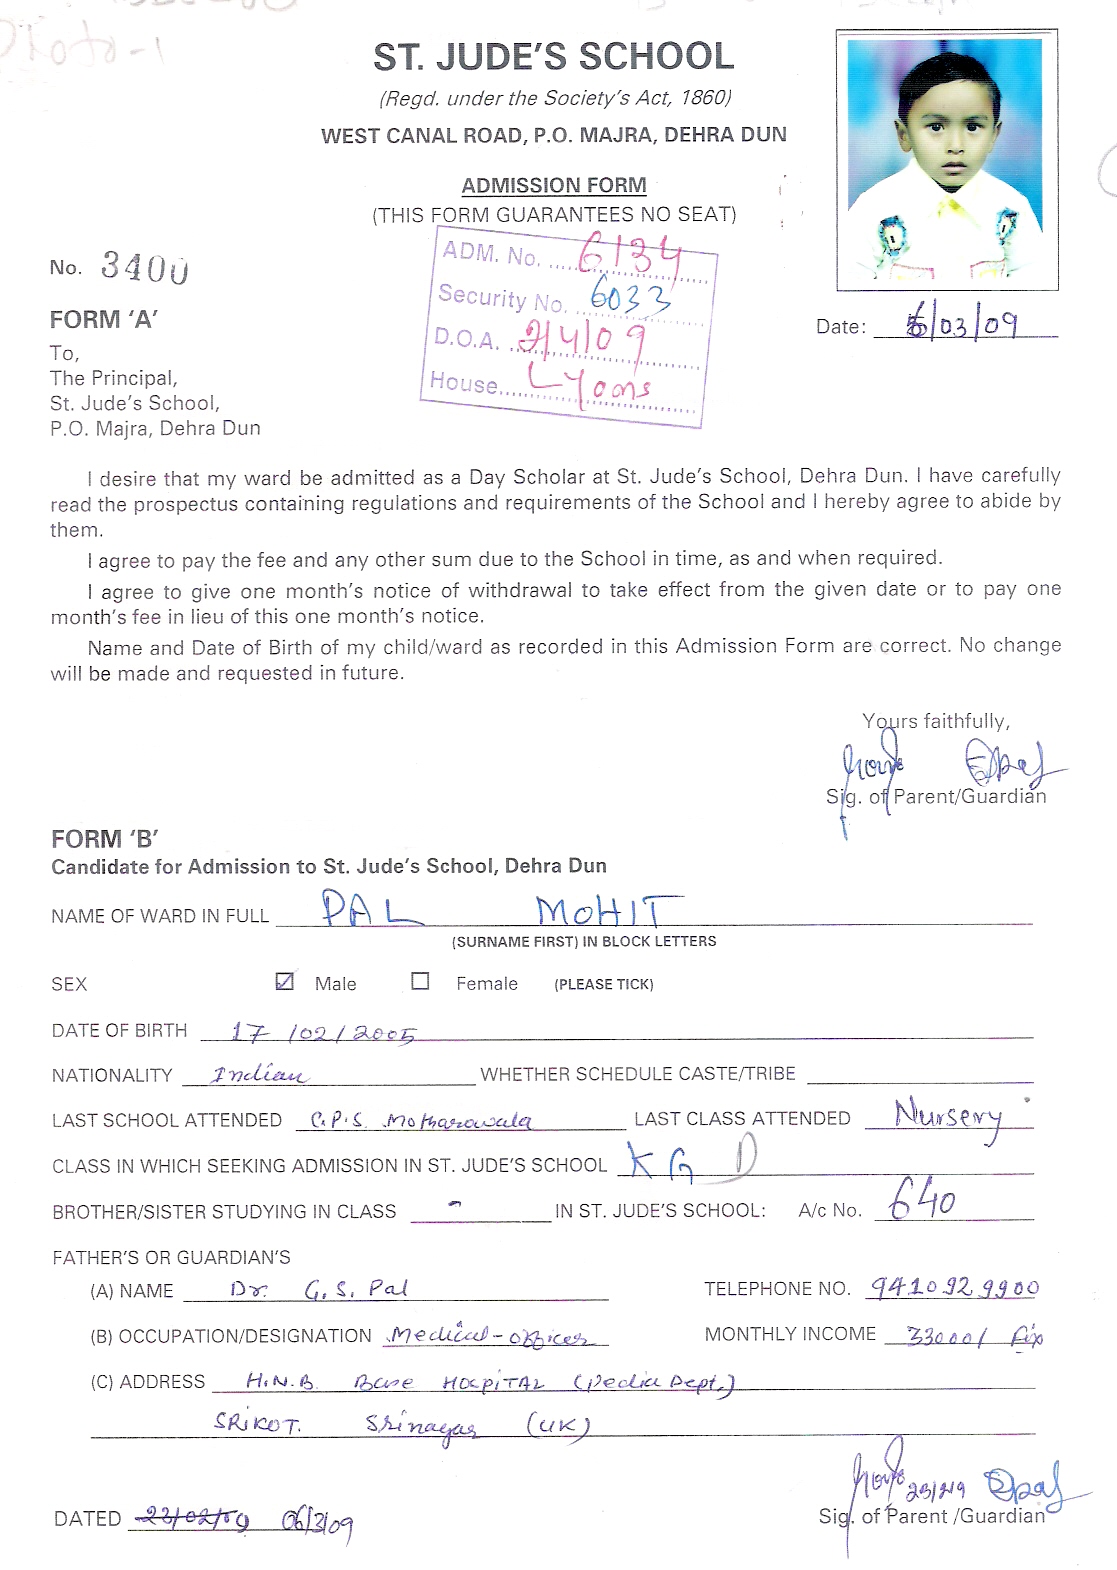 ST. JUDE'S SCHOOL
(Regd. under the Society's Act, 1860)
WEST CANAL ROAD, P.O. MAJRA, DEHRA DUN
ADMISSION FORM
(THIS FORM GUARANTEES NO SEAT)
No. 3400
ADM. No. 6134
Security No. 6033
D.O.A. 2/4/09
House Lyons
Date: 6/03/09
FORM 'A'
To,
The Principal,
St. Jude's School,
P.O. Majra, Dehra Dun
I desire that my ward be admitted as a Day Scholar at St. Jude's School, Dehra Dun. I have carefully
read the prospectus containing regulations and requirements of the School and I hereby agree to abide by
them.
I agree to pay the fee and any other sum due to the School in time, as and when required.
I agree to give one month's notice of withdrawal to take effect from the given date or to pay one
month's fee in lieu of this one month's notice.
Name and Date of Birth of my child/ward as recorded in this Admission Form are correct. No change
will be made and requested in future.
Yours faithfully,
Sig. of Parent/Guardian
FORM 'B'
Candidate for Admission to St. Jude's School, Dehra Dun
NAME OF WARD IN FULL PAL MOHIT
(SURNAME FIRST) IN BLOCK LETTERS
SEX Male Female (PLEASE TICK)
DATE OF BIRTH 17/02/2005
NATIONALITY Indian WHETHER SCHEDULE CASTE/TRIBE
LAST SCHOOL ATTENDED C.P.S. Motharowala LAST CLASS ATTENDED Nursery
CLASS IN WHICH SEEKING ADMISSION IN ST. JUDE'S SCHOOL KG D
BROTHER/SISTER STUDYING IN CLASS - IN ST. JUDE'S SCHOOL: A/c No. 640
FATHER'S OR GUARDIAN'S
(A) NAME Dr. G.S. Pal TELEPHONE NO. 9410929900
(B) OCCUPATION/DESIGNATION Medical-officer MONTHLY INCOME 33000/ fix
(C) ADDRESS H.N.B. Base HOSPITAL (Pedia Dept.)
SRIKOT. Srinagar (UK)
DATED 23/02/09 06/3/09
Sig. of Parent /Guardian